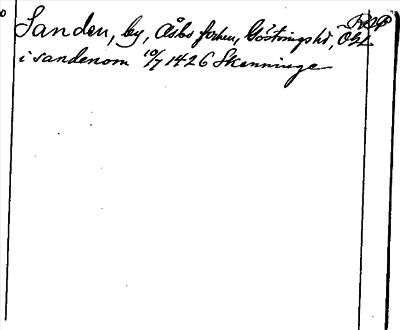 RAP
Sanden, by, Åsbo socken, Göstringshd, ÖGL
i sandenom 10/7 1426 Skenninge